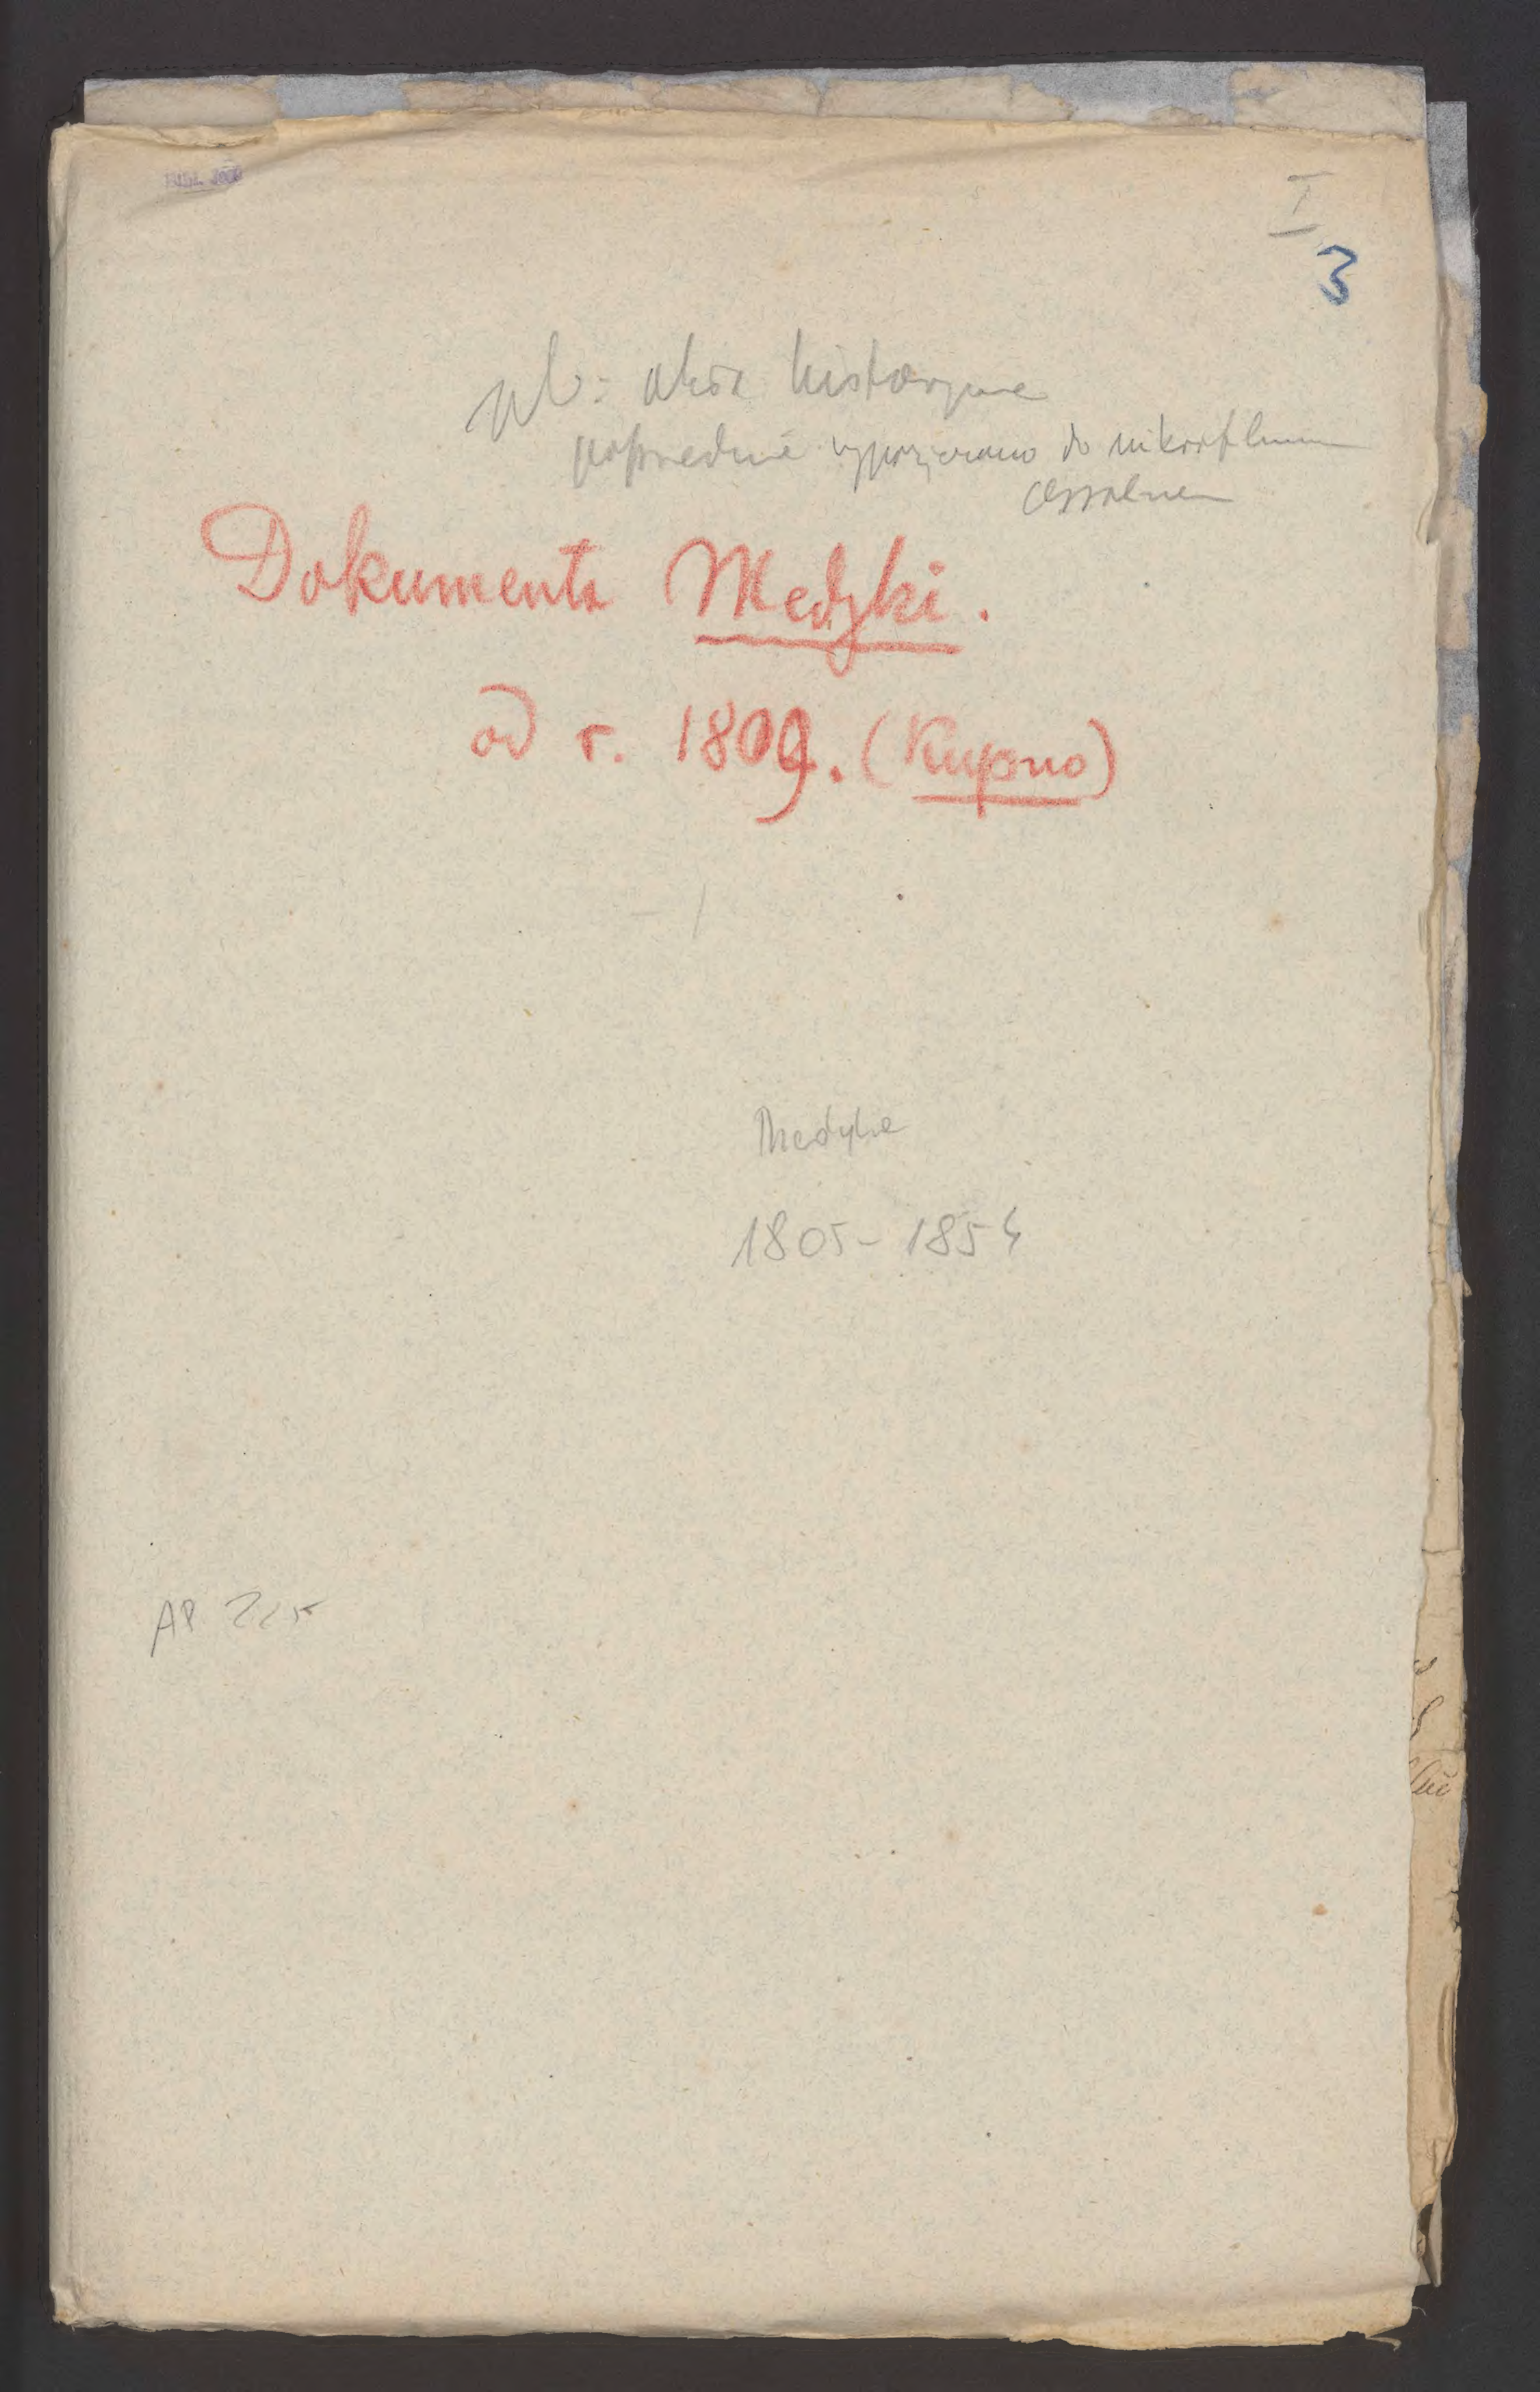 BIBL. JAG.
I
3
akta historyczne
poprzednie wypożyczano do mikrofilmu
Dokumenta Medyki.
od r. 1809. (Kupno)
Medyka
1805-1854
AP 225